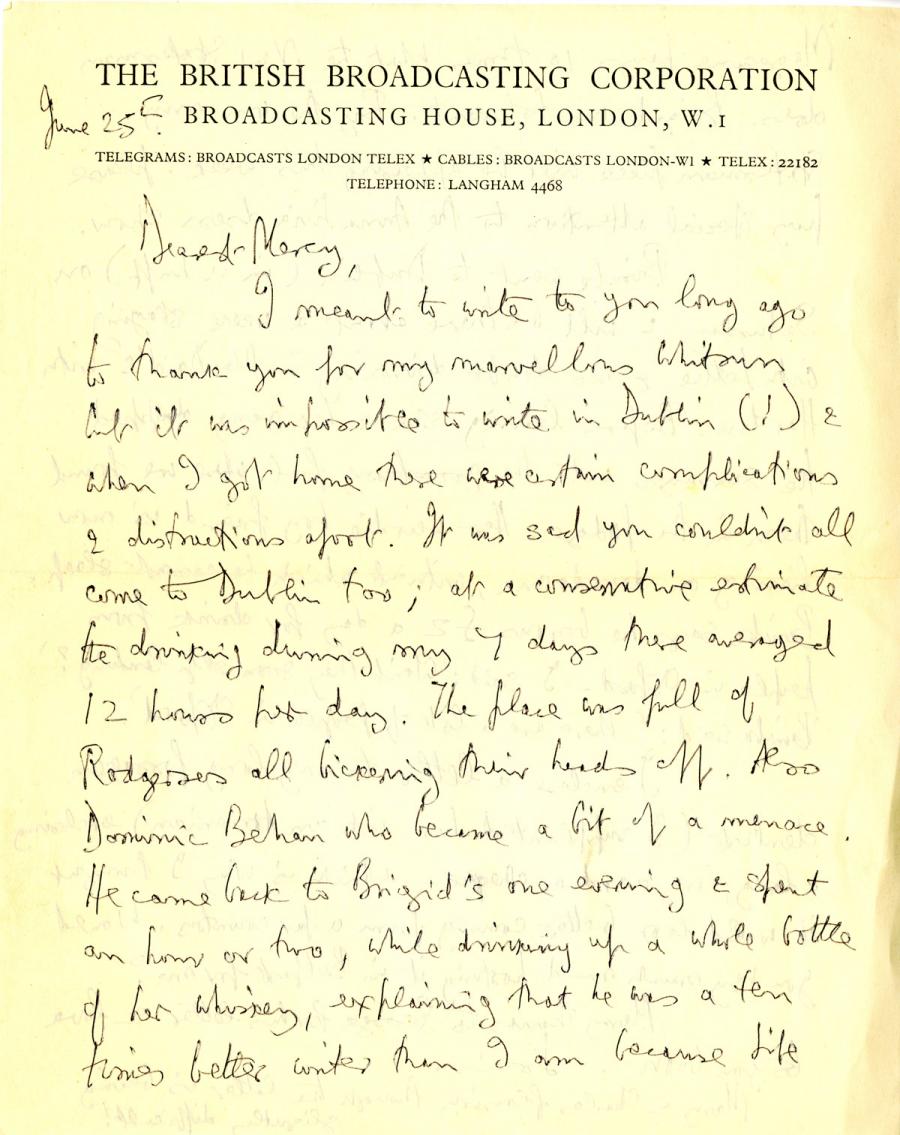 THE BRITISH BROADCASTING CORPORATION
BROADCASTING HOUSE, LONDON, W.1
June 25th.
TELEGRAMS: BROADCASTS LONDON TELEX ★ CABLES: BROADCASTS LONDON-W1 ★ TELEX: 22182
TELEPHONE: LANGHAM 4468
Dearest Mercy,
I meant to write to you long ago
to thank you for my marvellous Whitsun
but it was impossible to write in Dublin (!) &
when I got home there were certain complications
& distractions afoot. It was sad you couldn't all
come to Dublin too; at a conservative estimate
the drinking during my 7 days there averaged
12 hours per day. The place was full of
Rodgerses all bickering their heads off. Also
Dominic Behan who became a bit of a menace.
He came back to Brigid's one evening & spent
an hour or two, while drinking up a whole bottle
of her whiskey, explaining that he was a ten
times better writer than I am because life